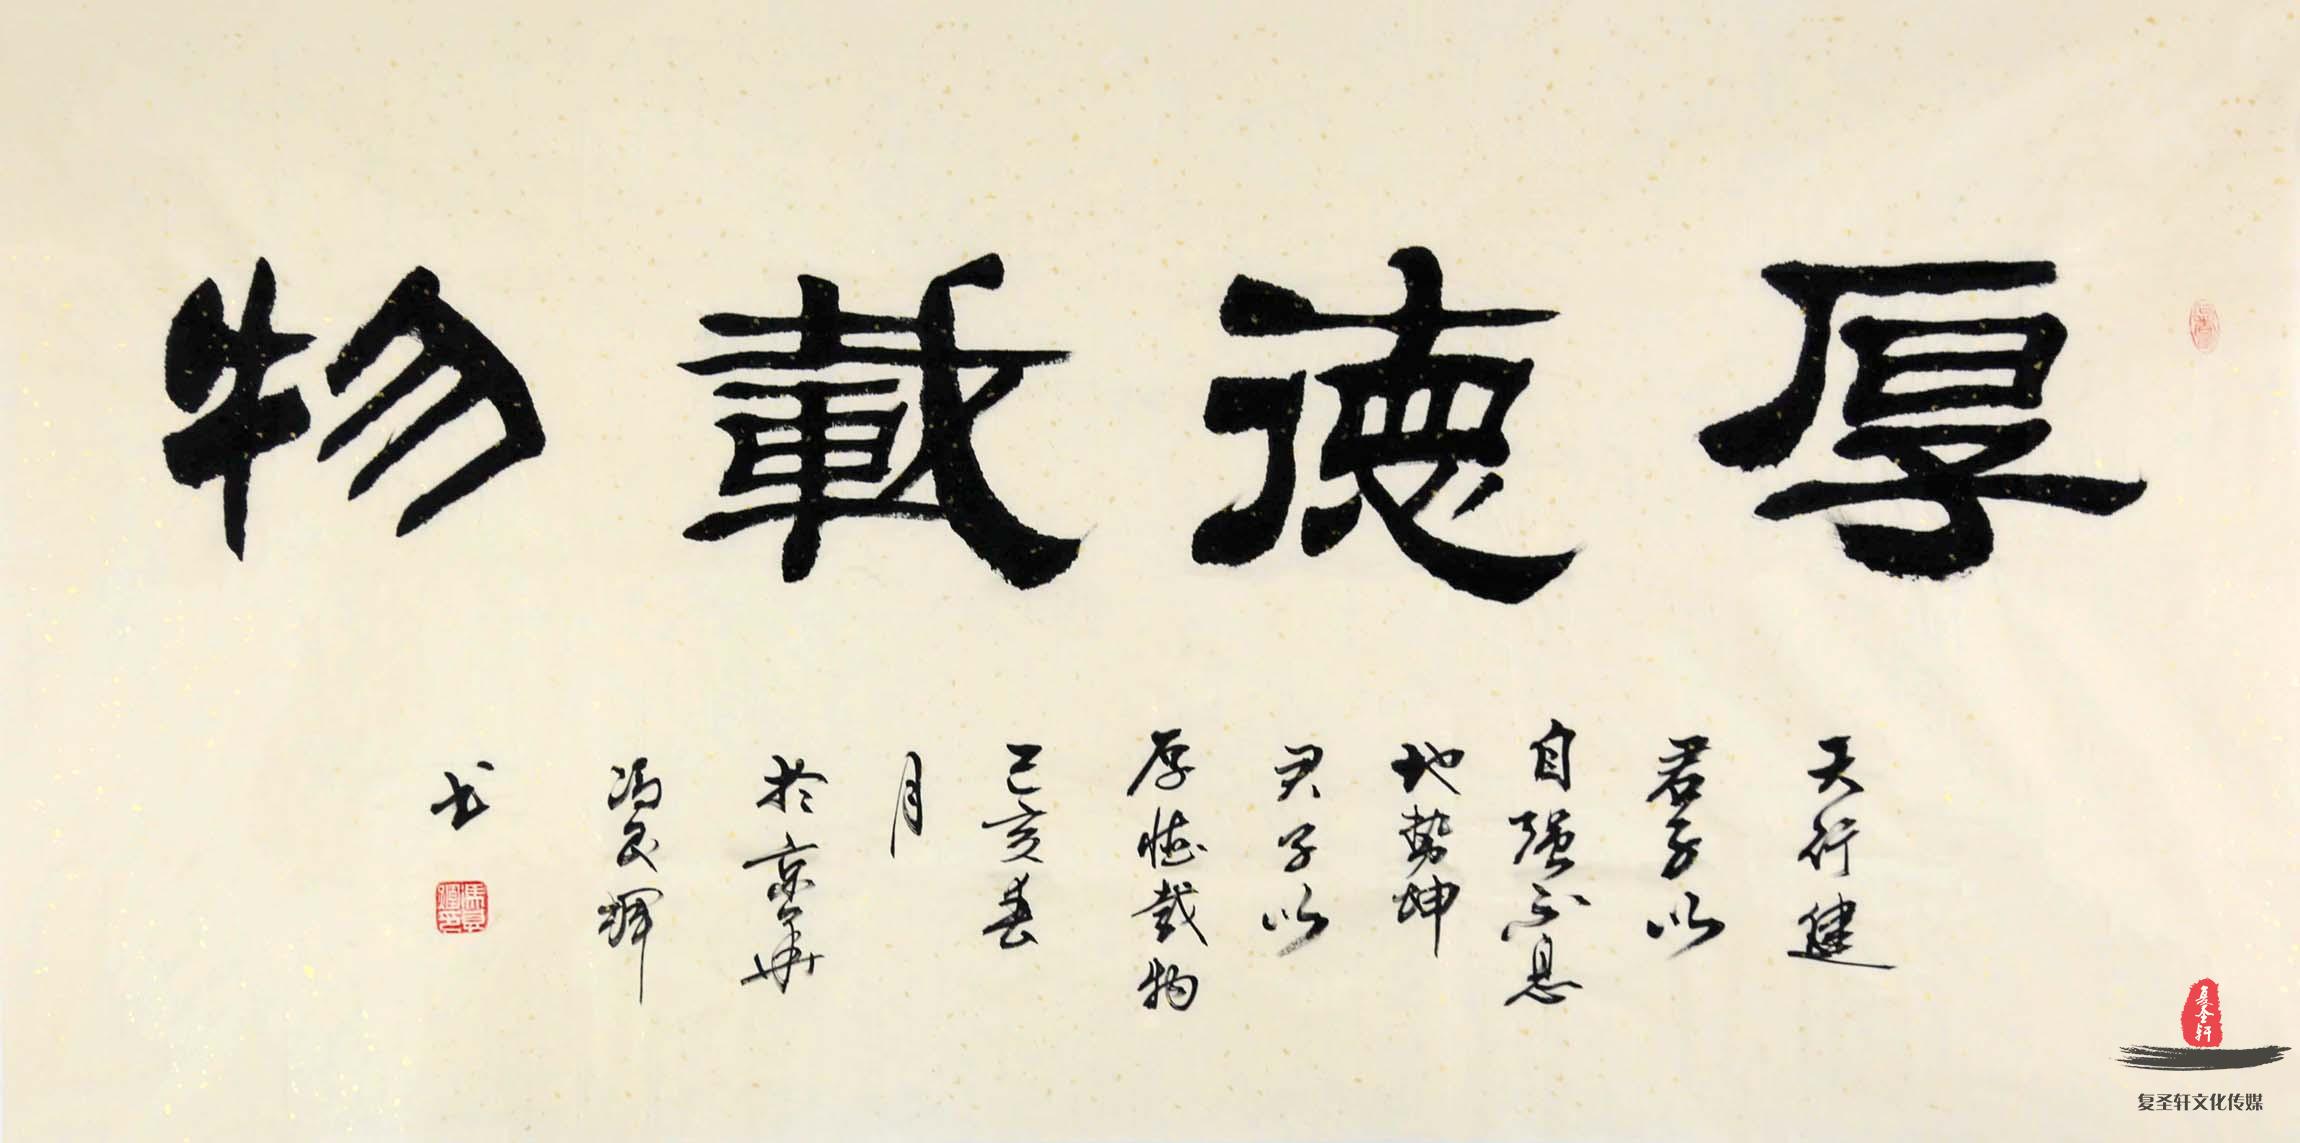 厚德載物
天行健
君子以
自强不息
地勢坤
君子以
厚德載物
己亥春
月
於京華
馮良輝
书
复圣轩
复圣轩文化传媒